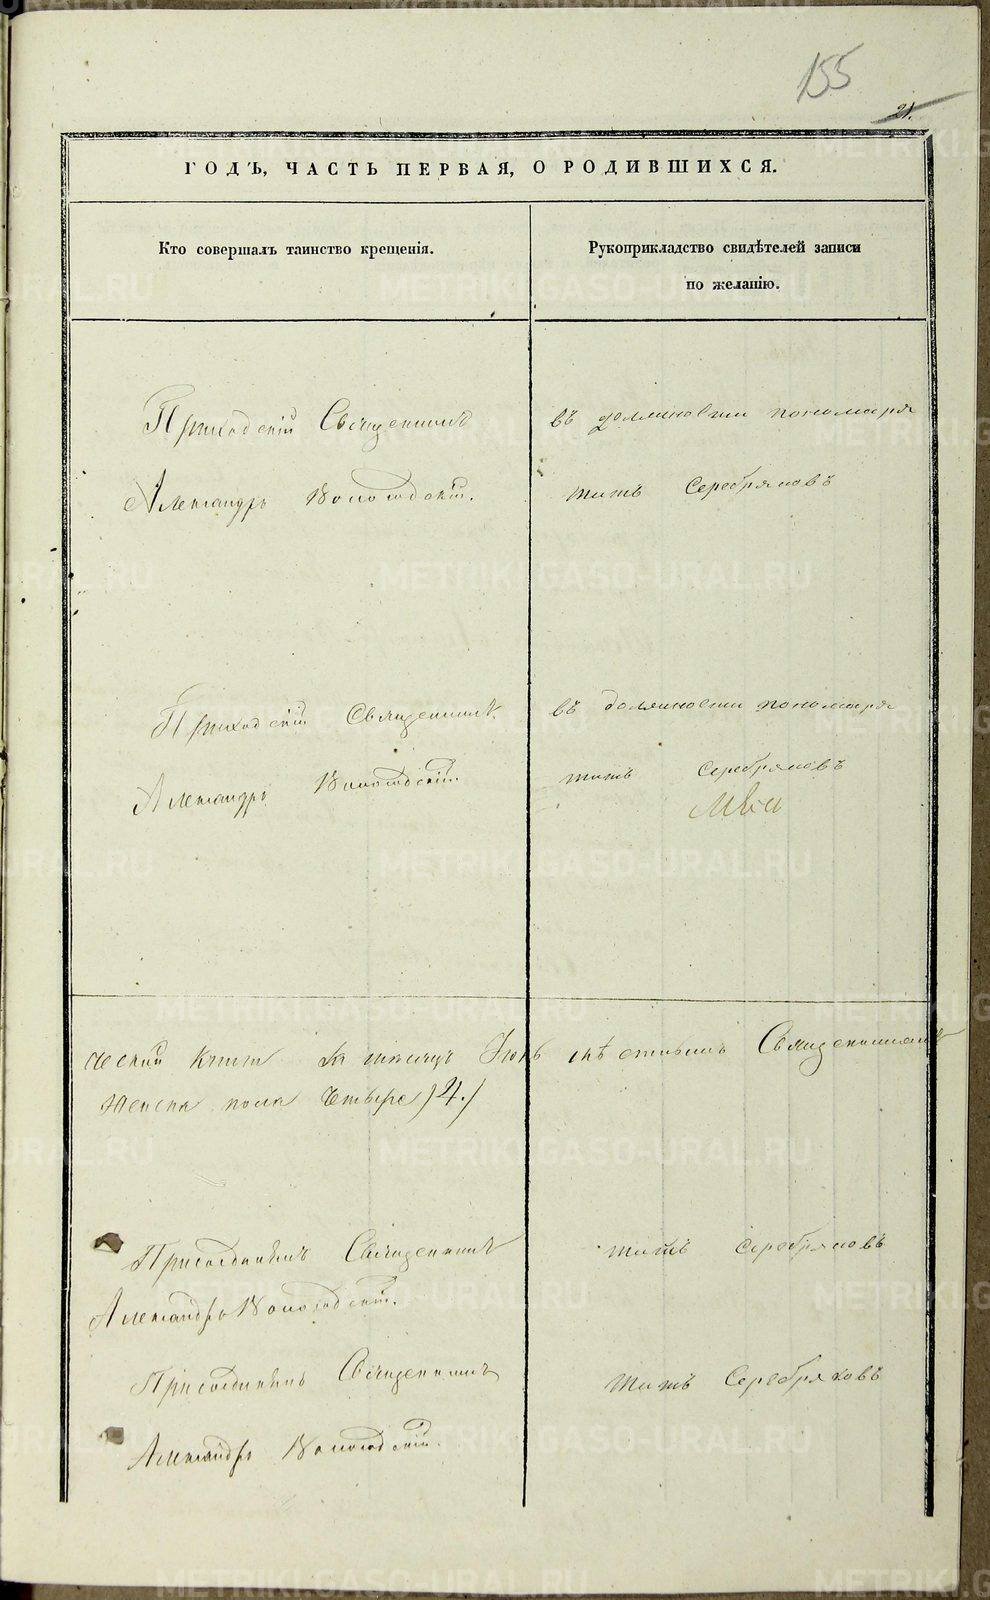 155
21.
ГОДЪ, ЧАСТЬ ПЕРВАЯ, О РОДИВШИХСЯ.
Кто совершалъ таинство крещенія.
Рукоприкладство свидѣтелей записи
по желанію.
Приходскій Священникъ
Александръ Вологодскій.
въ должности пономаря
Титъ Серебряковъ
Приходскій Священникъ
Александръ Вологодскій.
въ должности пономаря
Титъ Серебряковъ
ческій книги за мѣсяцъ Іюнь Священникъ
Женска пола Четыре (4.)
Присоединилъ Священникъ
Александръ Вологодскій.
Титъ Серебряковъ
Присоединилъ Священникъ
Александръ Вологодскій.
Титъ Серебряковъ
METRIKI.GASO-URAL.RU